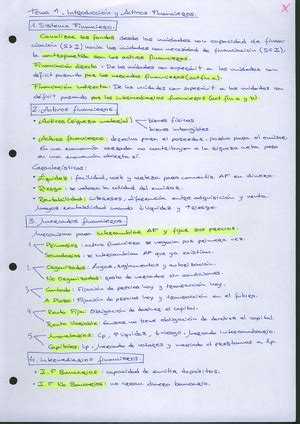 Tema 1. Introducción y Activos Financieros.
1. Sistema Financiero:
Canaliza los fondos desde las unidades con capacidad de finan-
ciación (S>I) hacia las unidades con necesidad de financiación (S<I).
la contrapartida son los activos financieros.
Financiación directa: De las unidades con superávit a las unidades con
déficit pasando por los mercados financieros (act.fin.).
Financiación indirecta: De las unidades con superávit a las unidades con
déficit pasando por los intermediarios financieros (act. fin. a y b).
2. Activos financieros:
• Activos (riqueza material) bienes físicos
bienes intangibles
• Activos financieros: derecho para el poseedor, pasivo para el emisor.
En una economía cerrado no contribuyen a la riqueza neta pero
en una economía abierta sí.
Características:
• Liquidez: facilidad, coste y rapidez para convertir AF en dinero.
• Riesgo: se valora la calidad del emisor.
• Rentabilidad: intereses, diferencia entre adquisición y venta.
Mayor rentabilidad cuando ↓liquidez y ↑riesgo.
3. Mercados financieros:
Mecanismo para intercambiar AF y fijar sus precios.
1 Primarios: activo financiero se negocia por primera vez.
Secundarios: se intercambian AF que ya existían.
2 Organizados: lugar, reglamentos y autorización.
No Organizados: resto de mercados sin condiciones.
3 Contado: Fijación de precios hoy y transacción hoy.
A Plazo: Fijación de precios hoy y transacción en el futuro.
4 Renta Fija: Obligación de devolver el capital.
Renta Variable: Emisor no tiene obligación de devolver el capital.
5 Monetarios: Cp, ↑liquidez, ↓riesgo, Mercado interbancario.
Capitales: Lp, Mercado de valores y mercado de préstamos a Lp.
4. Intermediarios financieros:
• I.F Bancarios: capacidad de emitir depósitos.
• I.F No Bancarios: no crean dinero bancario.